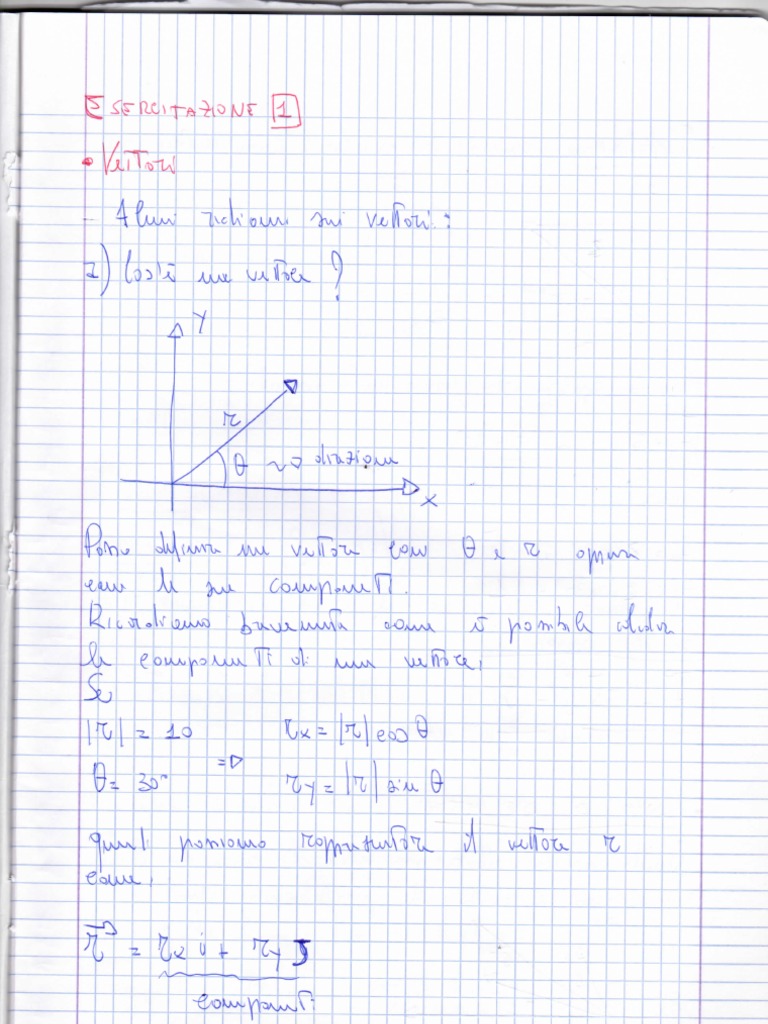 ESERCITAZIONE 1
• Vettori
- Alcuni richiami sui vettori:
1) Cos'è un vettore?
y
r
θ ~> direzione
x
Posso definire un vettore con θ e r oppure
con le sue componenti.
Ricordiamo brevemente come è possibile calcolare
le componenti di un vettore,
Se
|r| = 10 rx = |r| cos θ
=>
θ = 30° ry = |r| sin θ
quindi possiamo rappresentare il vettore r
come,
r⃗ = rx i + ry j
componenti